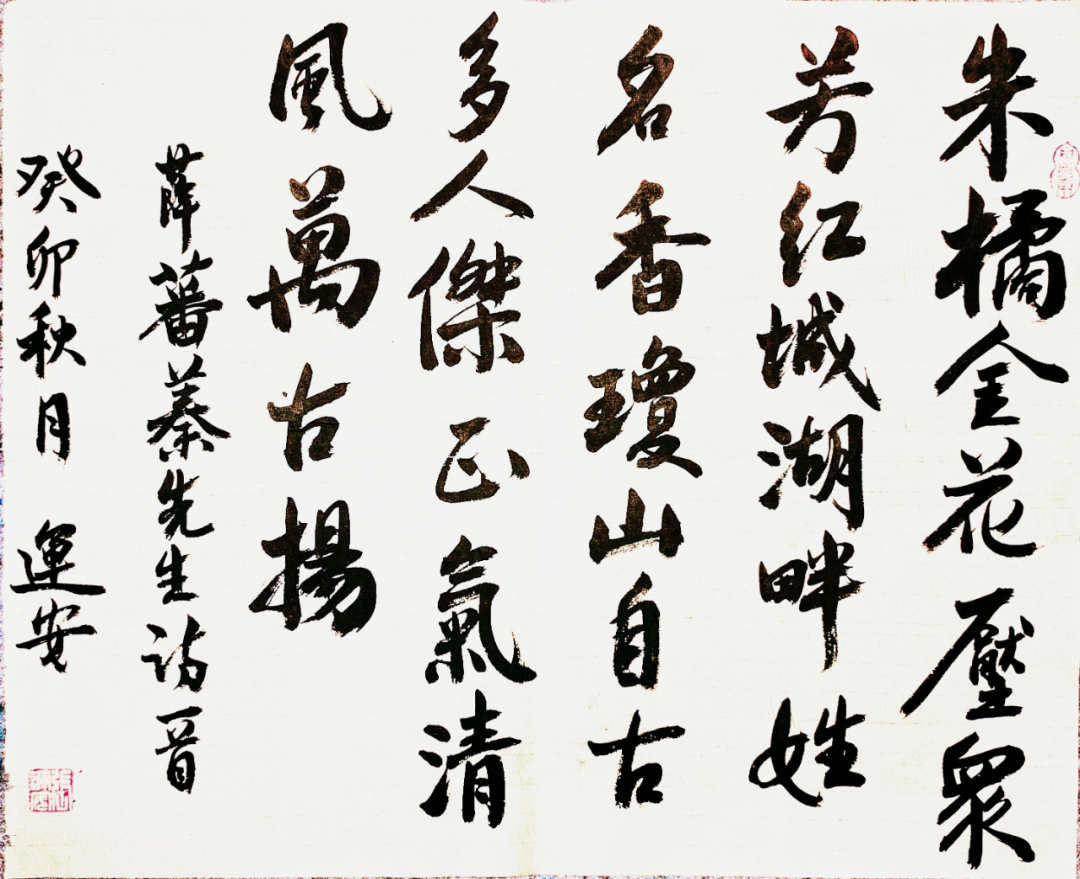 朱橘金花壓衆
芳红城湖畔姓
名香瓊山自古
多人傑正氣清
風萬古揚
薛蕃蓁先生詩一首
癸卯秋月 運安